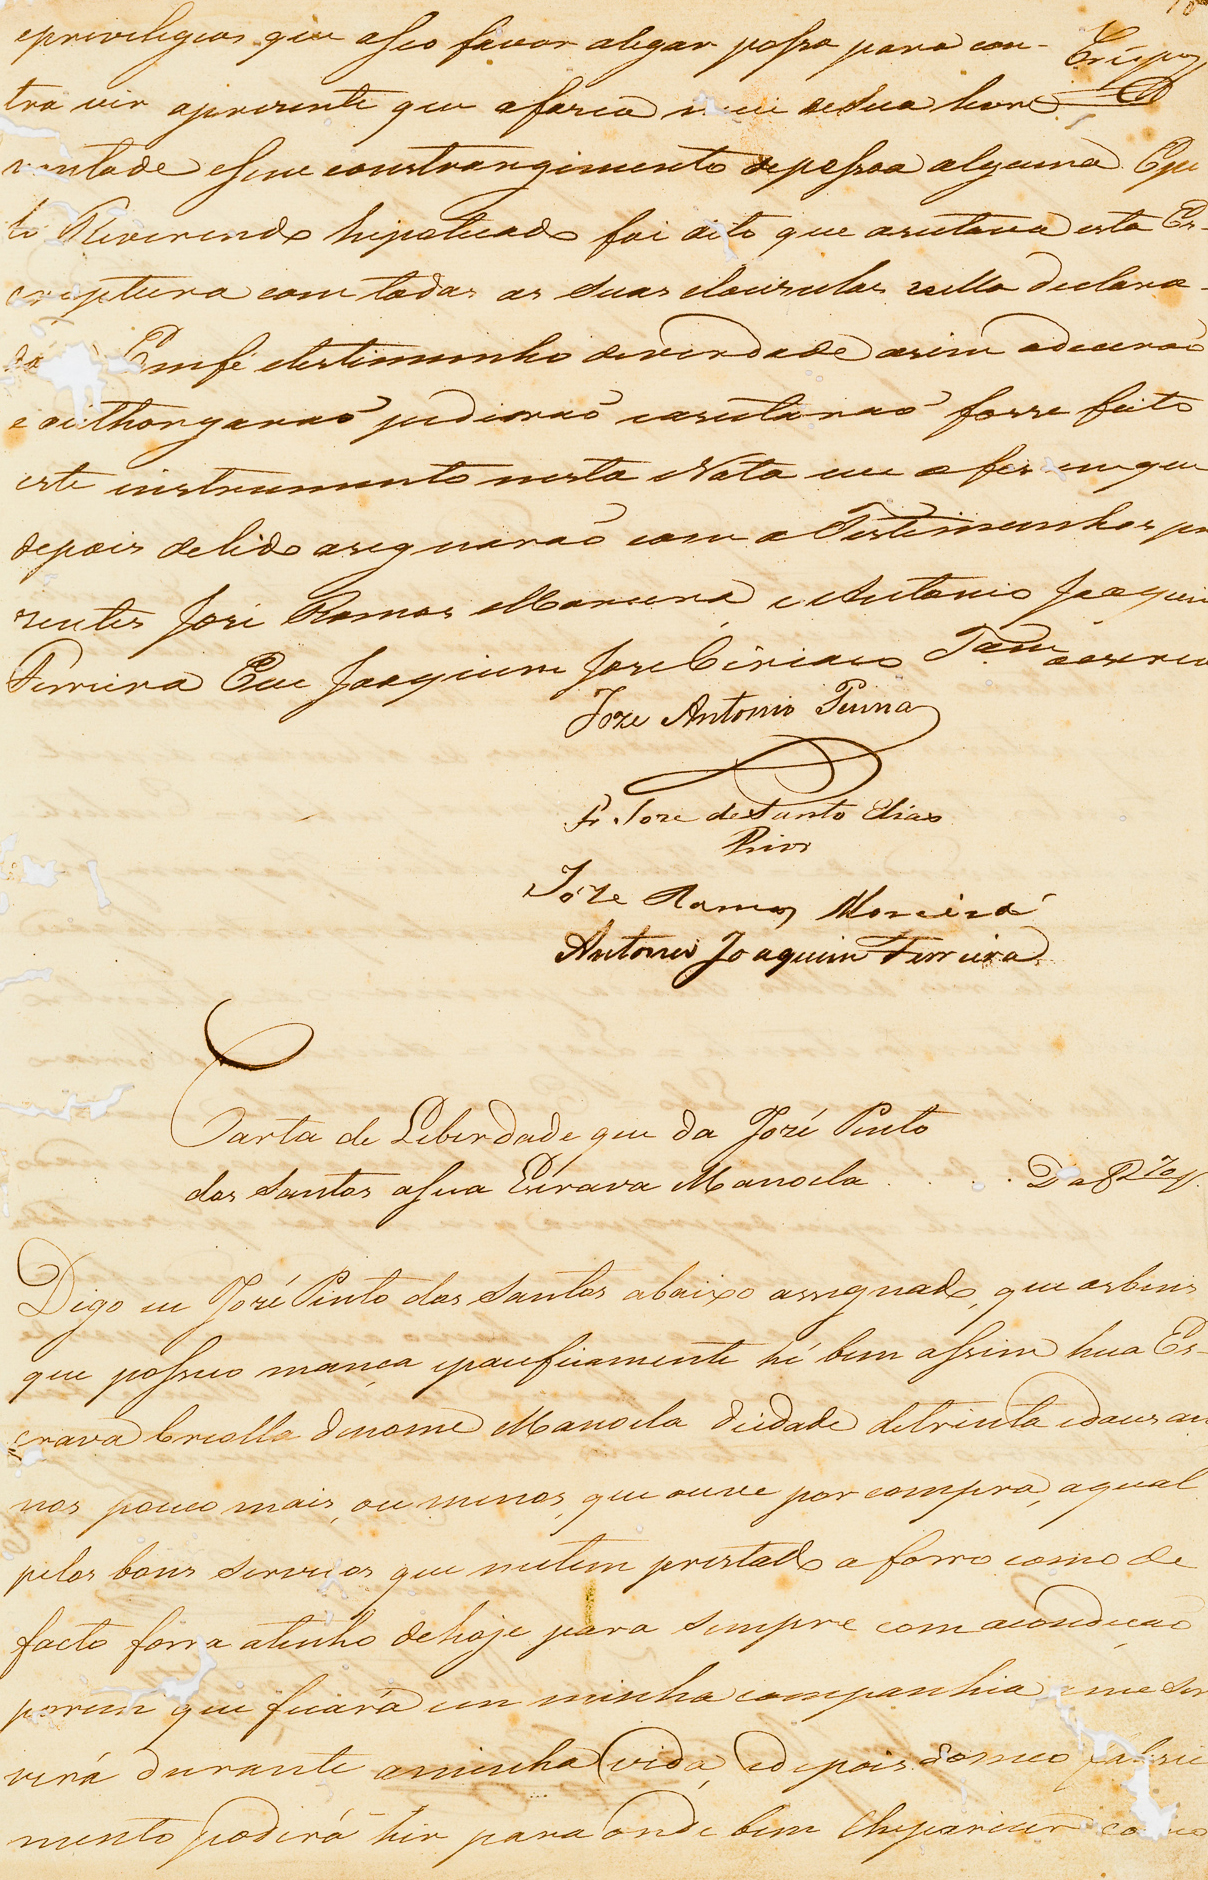 eprivilegios que aseo favor alegar possa para con-
tra vir apresente que afasia de Sua livre
vontade esem constrangimento depessoa alguma Epe
lo Reverendo hipotecado foi dito que aceitava esta Es-
criptura com todas as Suas clausulas nella declara-
das Emfé etestimunho deverdade asim adecerão
eouthorgarão pedirão eaceitarão fosse feito
este instrumento nesta Nota que afes emque
depois delido asegnarão com as Testimunhas pre
zentes José Ramos Moreira e Antonio Joaquim
Ferreira Eue Joaquim Jose Ciriaco Tam oescrevi
Joze Antonio Penna
Fr. Joze de Santo Elias
Prior
Józe Ramos Moreira
Antonio Joaquim Ferreira
Carta de Liberdade que da José Pinto
dos Santos asua Escrava Manoela
Digo eu José Pinto dos Santos abaixo assignado, que osbens
que possuo mança epacificamente hé bem assim hua Es-
crava Creolla denome Manoela deidade detrinta edous an
nos pouco mais, ou menos, que ouve por compra, aqual
pelos bons serviços que metem prestado aforro como de
facto forra atenho dehoje para sempre com acondição
porem que ficará em minha companhia eme ser
verá durante aminha vida, edepois domeo faleci
mento poderá hir para onde bem lheparecer como